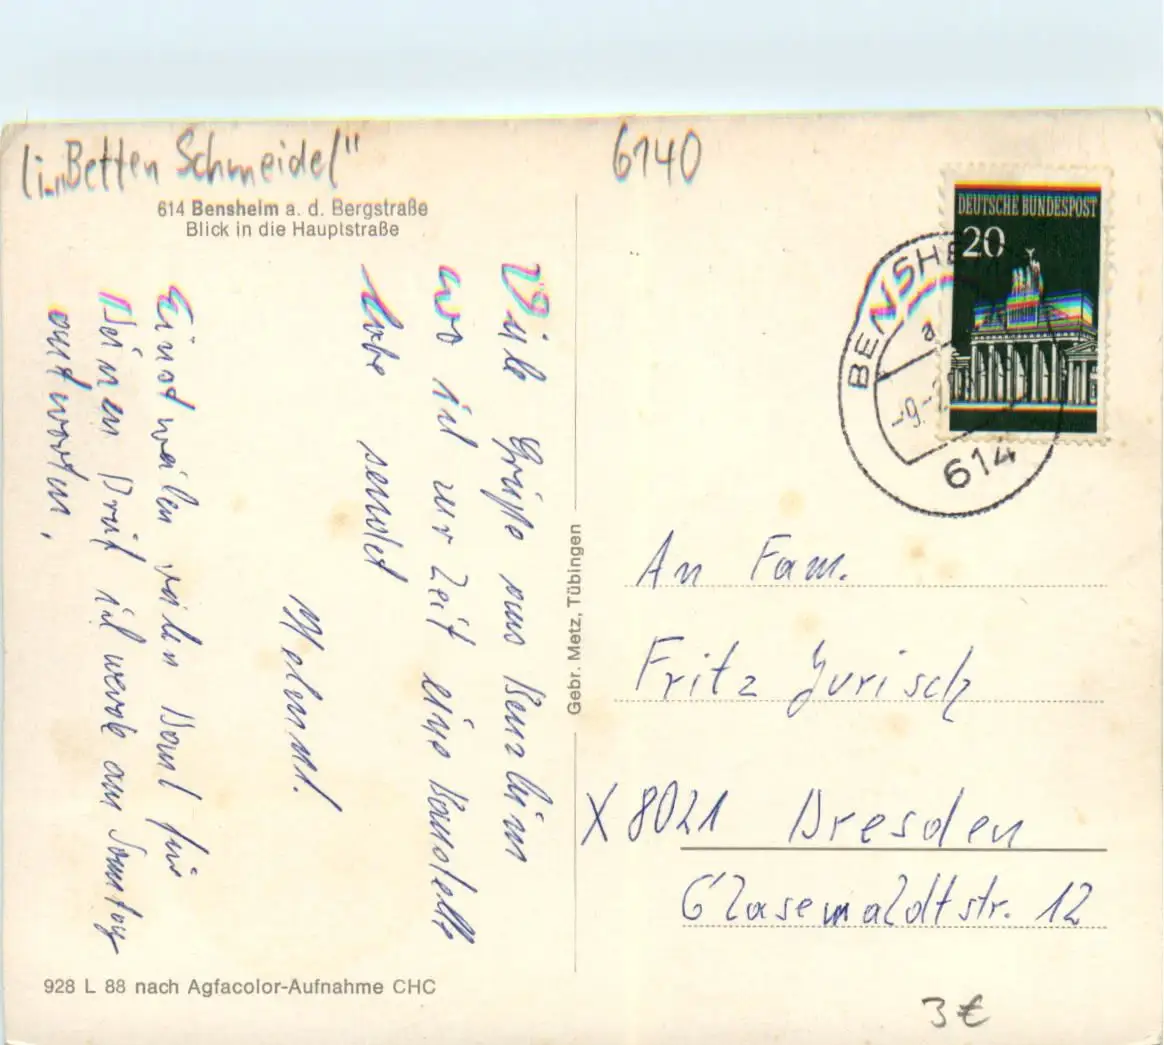 (i. „Betten Schmeidel"
6140
614 Bensheim a. d. Bergstraße
Blick in die Hauptstraße
DEUTSCHE BUNDESPOST
20
BENSHE
a
-9.-2
614
Viele Grüße aus Bensheim
wo ich zur Zeit eine Baustelle
habe sendet
Helmut.
Einstweilen vielen Dank für
Deinen Brief ich werde am Sonntag
antworten.
Gebr. Metz, Tübingen
An Fam.
Fritz Jurisch
X 8021 Dresden
Glasewaldtstr. 12
928 L 88 nach Agfacolor-Aufnahme CHC
3€